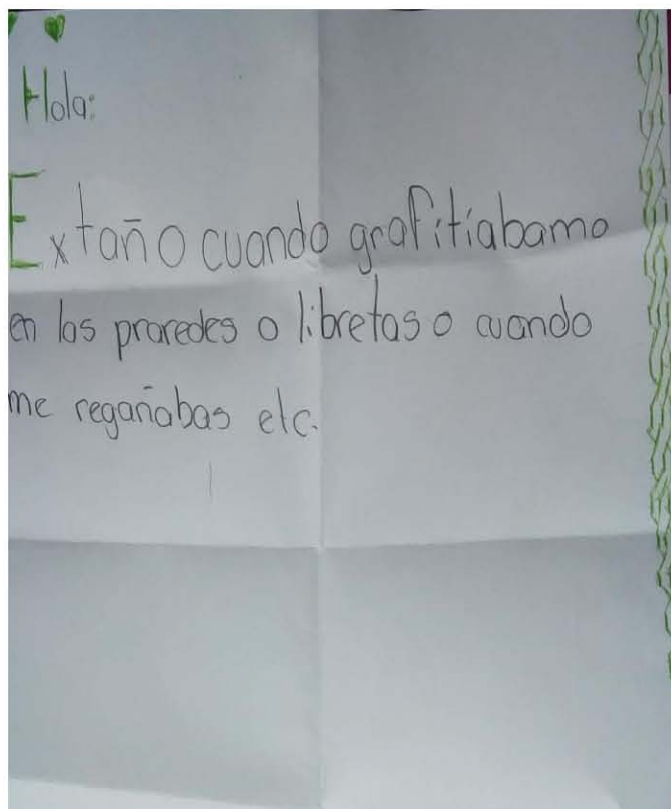 Hola:
Extaño cuando grafitiabamo
en las praredes o libretas o cuando
me regañabas etc.